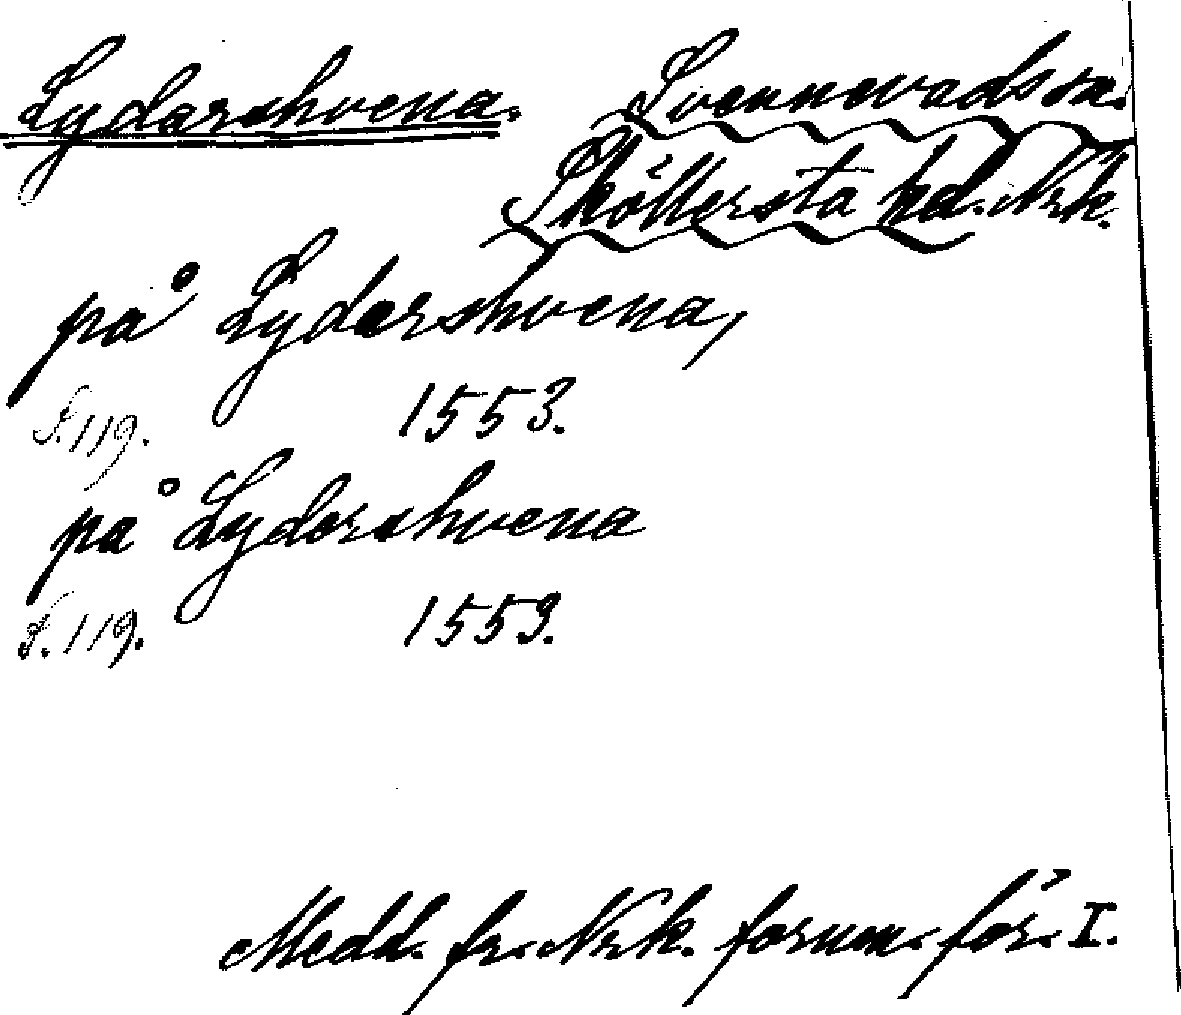 Lydarshvena. Svennevads sn.
Sköllersta hd. Nrk.
på Lydarshvena,
S. 119. 1553.
på Lydorshvena
S. 119. 1559.
Medd. fr. Nrk. fornm. för. I.